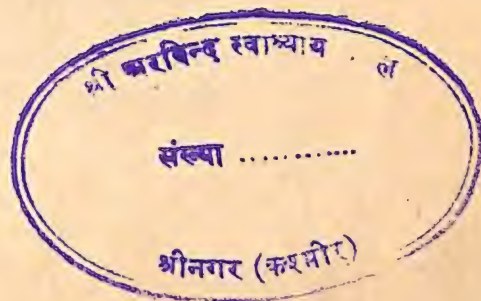 श्री अरविन्द स्वाध्याय
संख्या ............
श्रीनगर (कश्मीर)